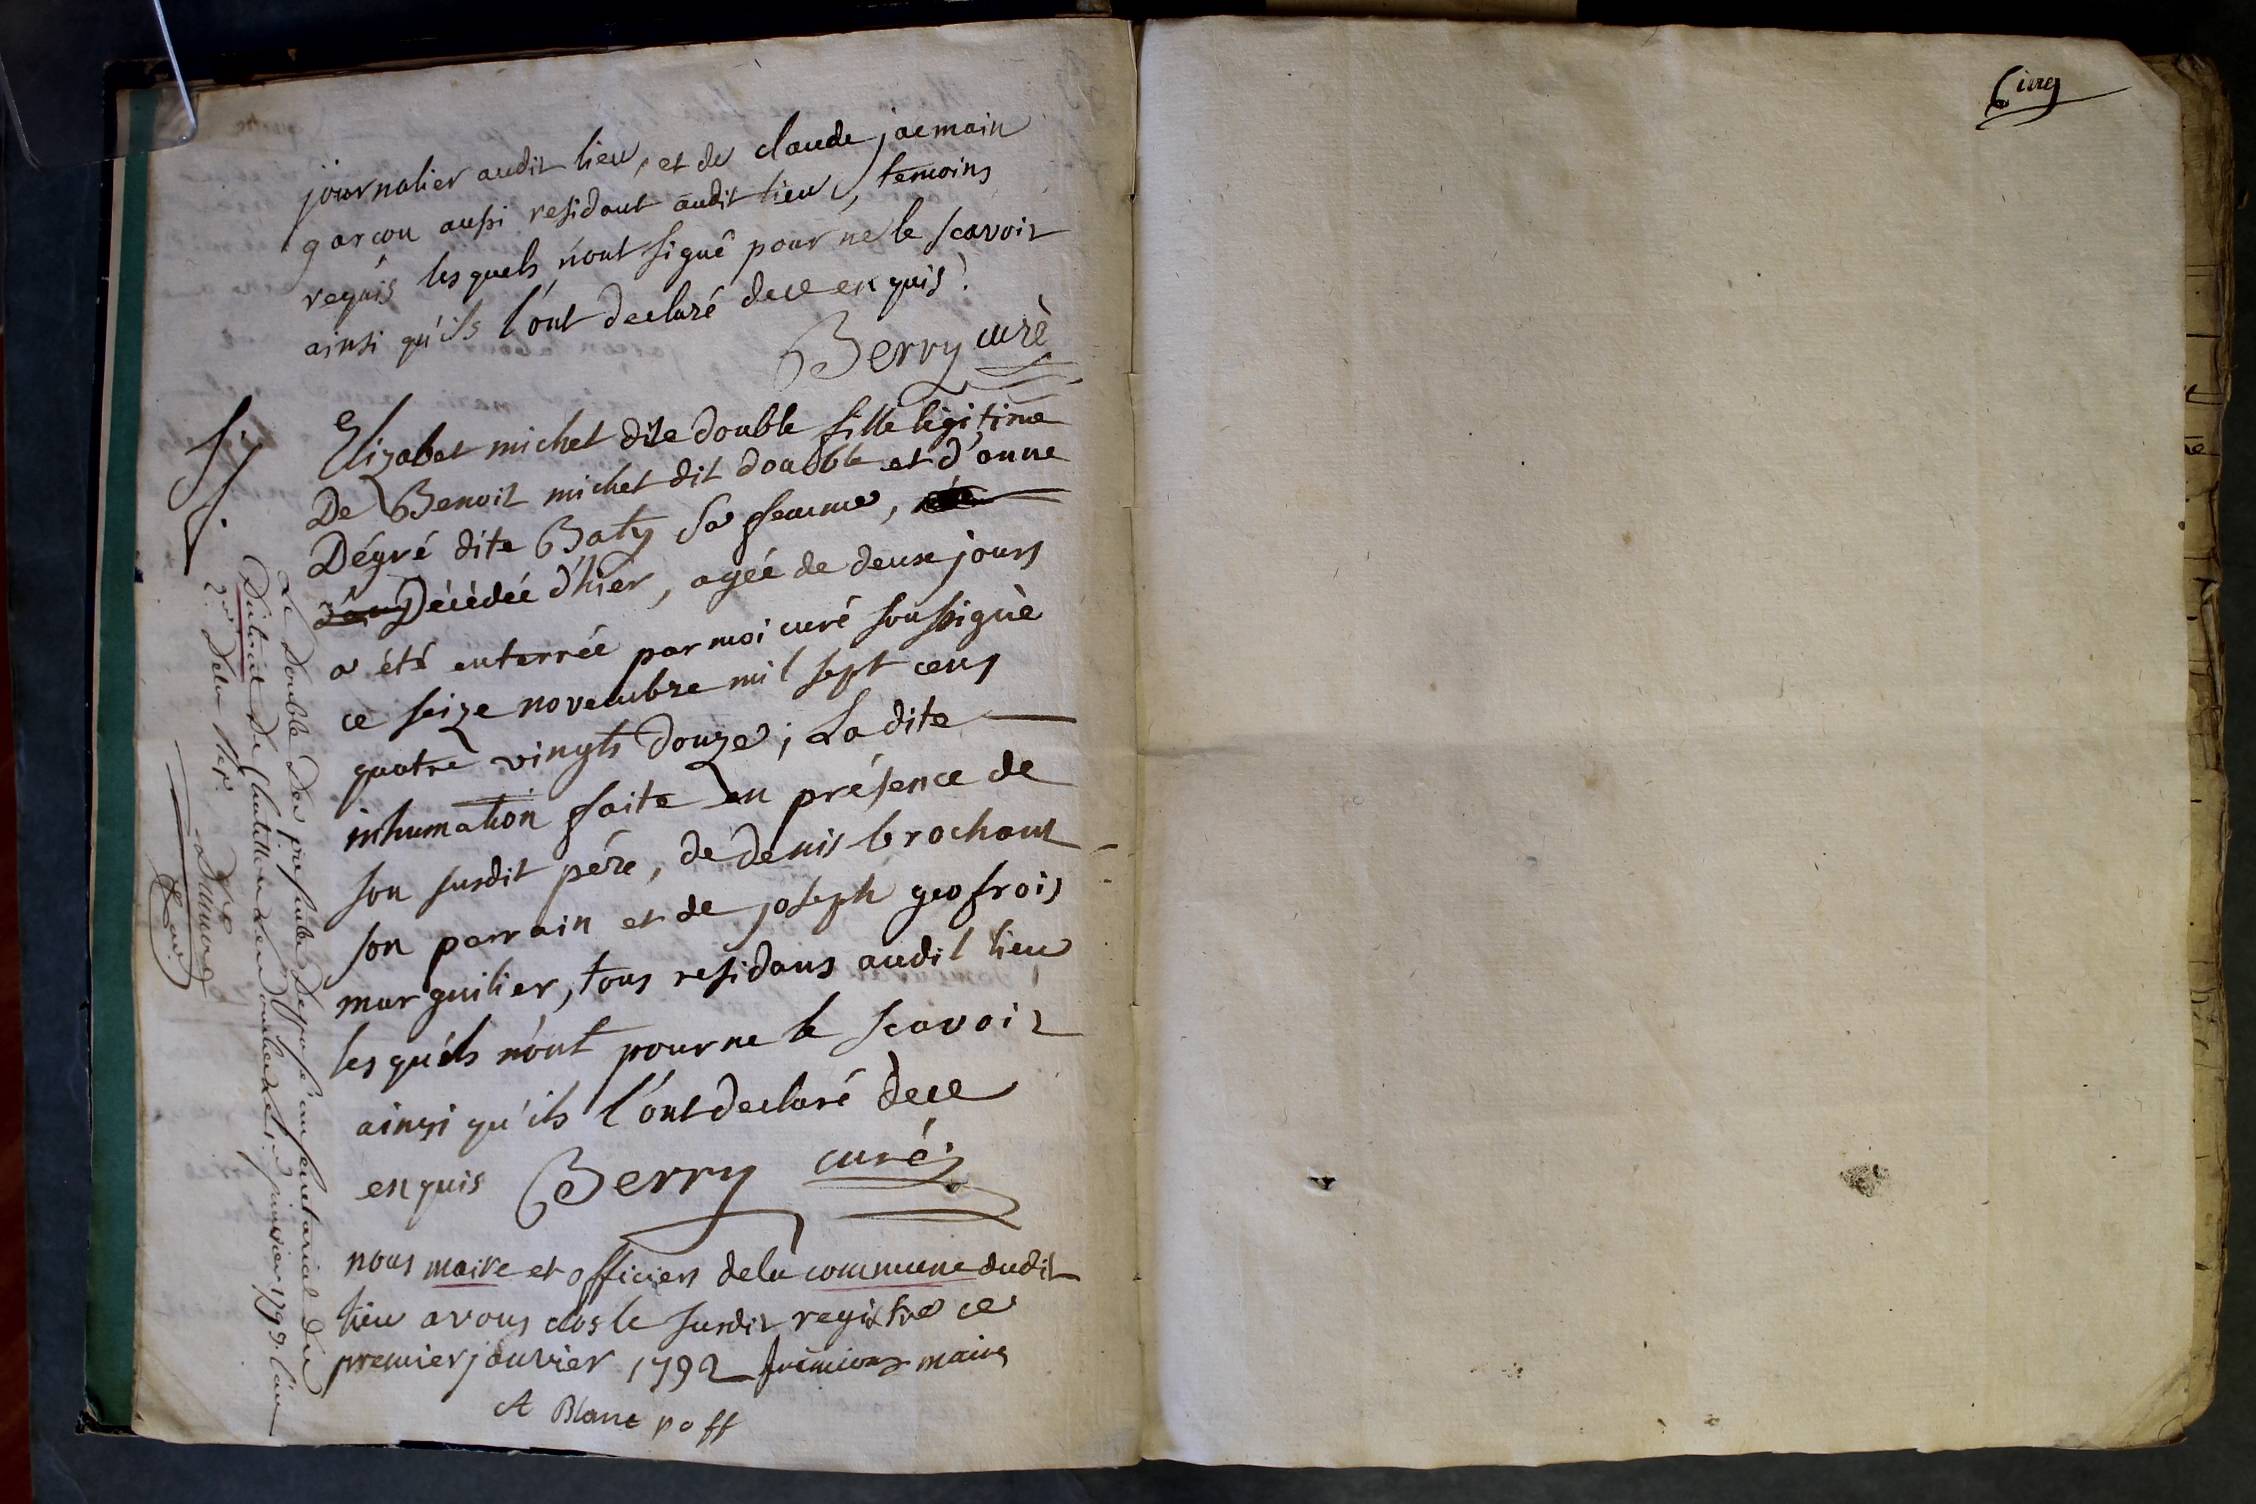 journalier audit lieu, et de claude jacmain
garcon aussi residant audit lieu, temoins
requis lesquels n'ont signé pour ne le scavoir
ainsi qu'ils l'ont declaré de ce enquis.
Berry curè
Elizabet michet dite double fille legitime
De Benoit michet dit double et d'anne
Dégré dite Baty sa femme,
Décèdéé d'hier, agéé de deux jours
a été enterréé par moi curé soussignè
ce seize novembre mil sept cens
quatre vingts douze; La dite
inhumation faite en présence de
son susdit pére, de denis brochant
son parrain et de joseph geofrois
marguilier, tous residans audit lieu
lesquéls n'ont pour ne le scavoir
ainsi qu'ils l'ont declaré de ce
enquis Berry curé
nous maire et officiers de la commune dudit
lieu avons clos le susdit registre ce
premier janvier 1792 maire
A Blanc poff
Le double des présentes déposé au secretariat du
District de janvier 1793. l'an
2e. de la Rep.